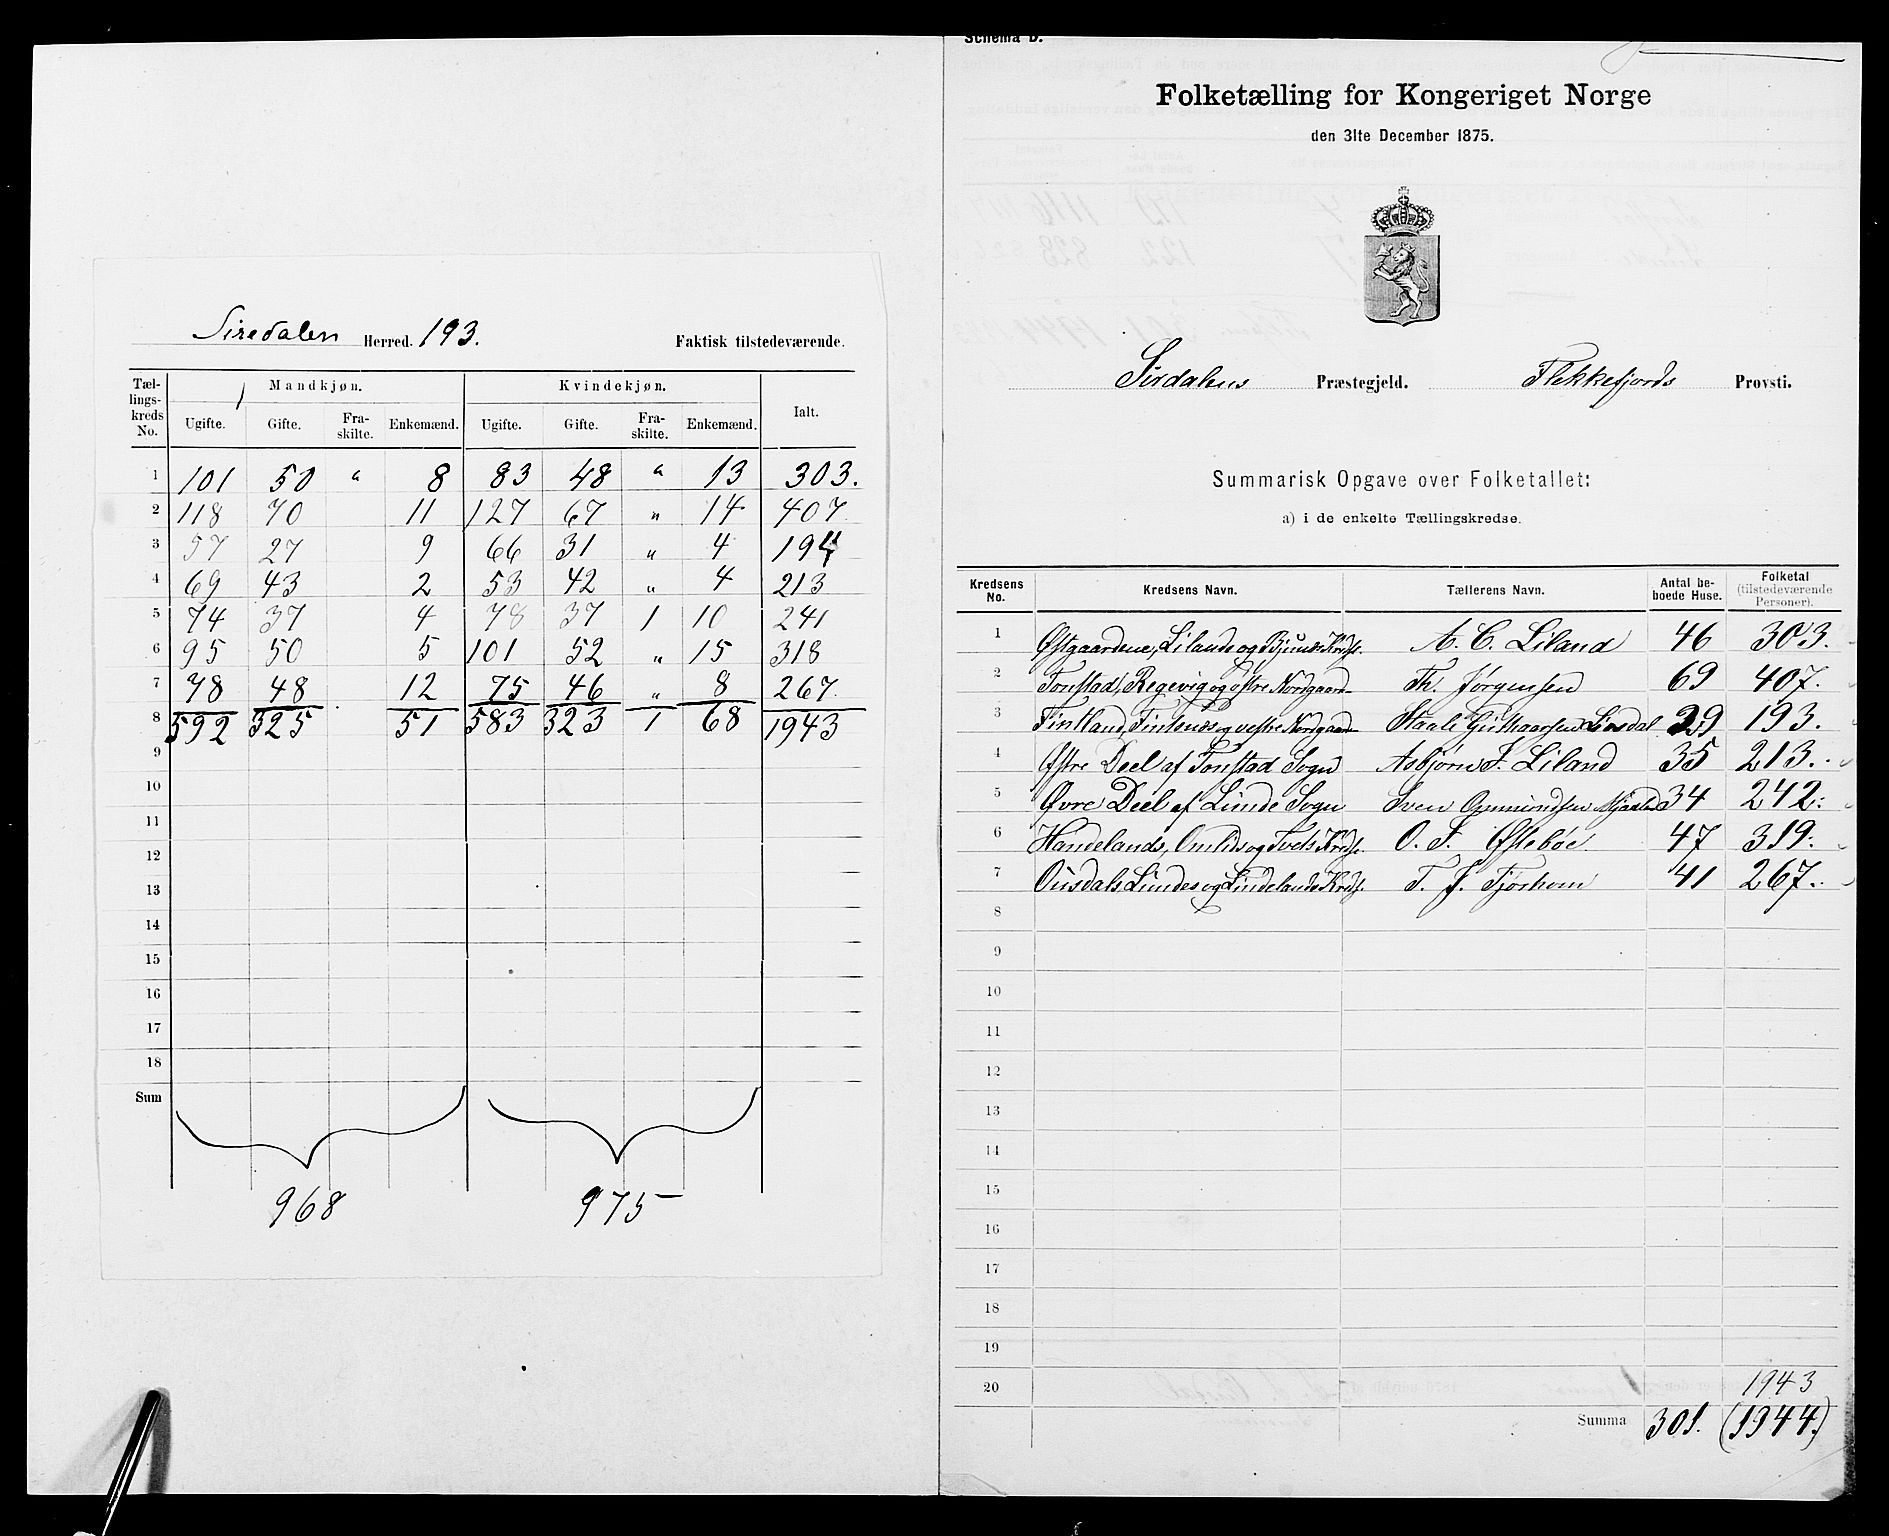 Siredalen Herred. 193. Faktisk tilstedeværende.
Tællingskreds No. Mandkjøn. Kvindekjøn. Ialt.
Ugifte. Gifte. Fraskilte. Enkemænd. Ugifte. Gifte. Fraskilte. Enkemænd.
1 101 50 " 8 83 48 " 13 303.
2 118 70 11 127 67 " 14 407
3 57 27 9 66 31 " 4 194
4 69 43 2 53 42 " 4 213
5 74 37 4 78 37 1 10 241
6 95 50 5 101 52 " 15 318
7 78 48 12 75 46 " 8 267.
8 592 325 51 583 323 1 68 1943
9
10
11
12
13
14
15
16
17
18
Sum
968 975
Schema D.
Folketælling for Kongeriget Norge
den 31te December 1875.
Sirdalens Præstegjeld. Flekkefjords Provsti.
Summarisk Opgave over Folketallet:
a) i de enkelte Tællingskredse.
Kredsens No. Kredsens Navn. Tællerens Navn. Antal beboede Huse. Folketal (tilstedeværende Personer).
1 Østgaardene, Lilands og Bjunes Krds. A. C. Liland 46 303.
2 Tonstad, Regevig og østre Nordgaard Th. Jørgensen 69 407.
3 Fintland, Fintsnes og vestre Nordgaard Staale Sirsdal 29 193.
4 Østre Deel af Tonstad Sogn Asbjørn T. Liland 35 213.
5 Øvre Deel af Lunde Sogn Sven Ommundsen 34 242.
6 Handelands, Omlids og Tvets Krds. O. T. Østebøe 47 319.
7 Ousdals Lundes og Lindelands Krds. T. J. Tjørhom 41 267.
8
9
10
11
12
13
14
15
16
17
18
19
20 1943
Summa 301. (1944.)